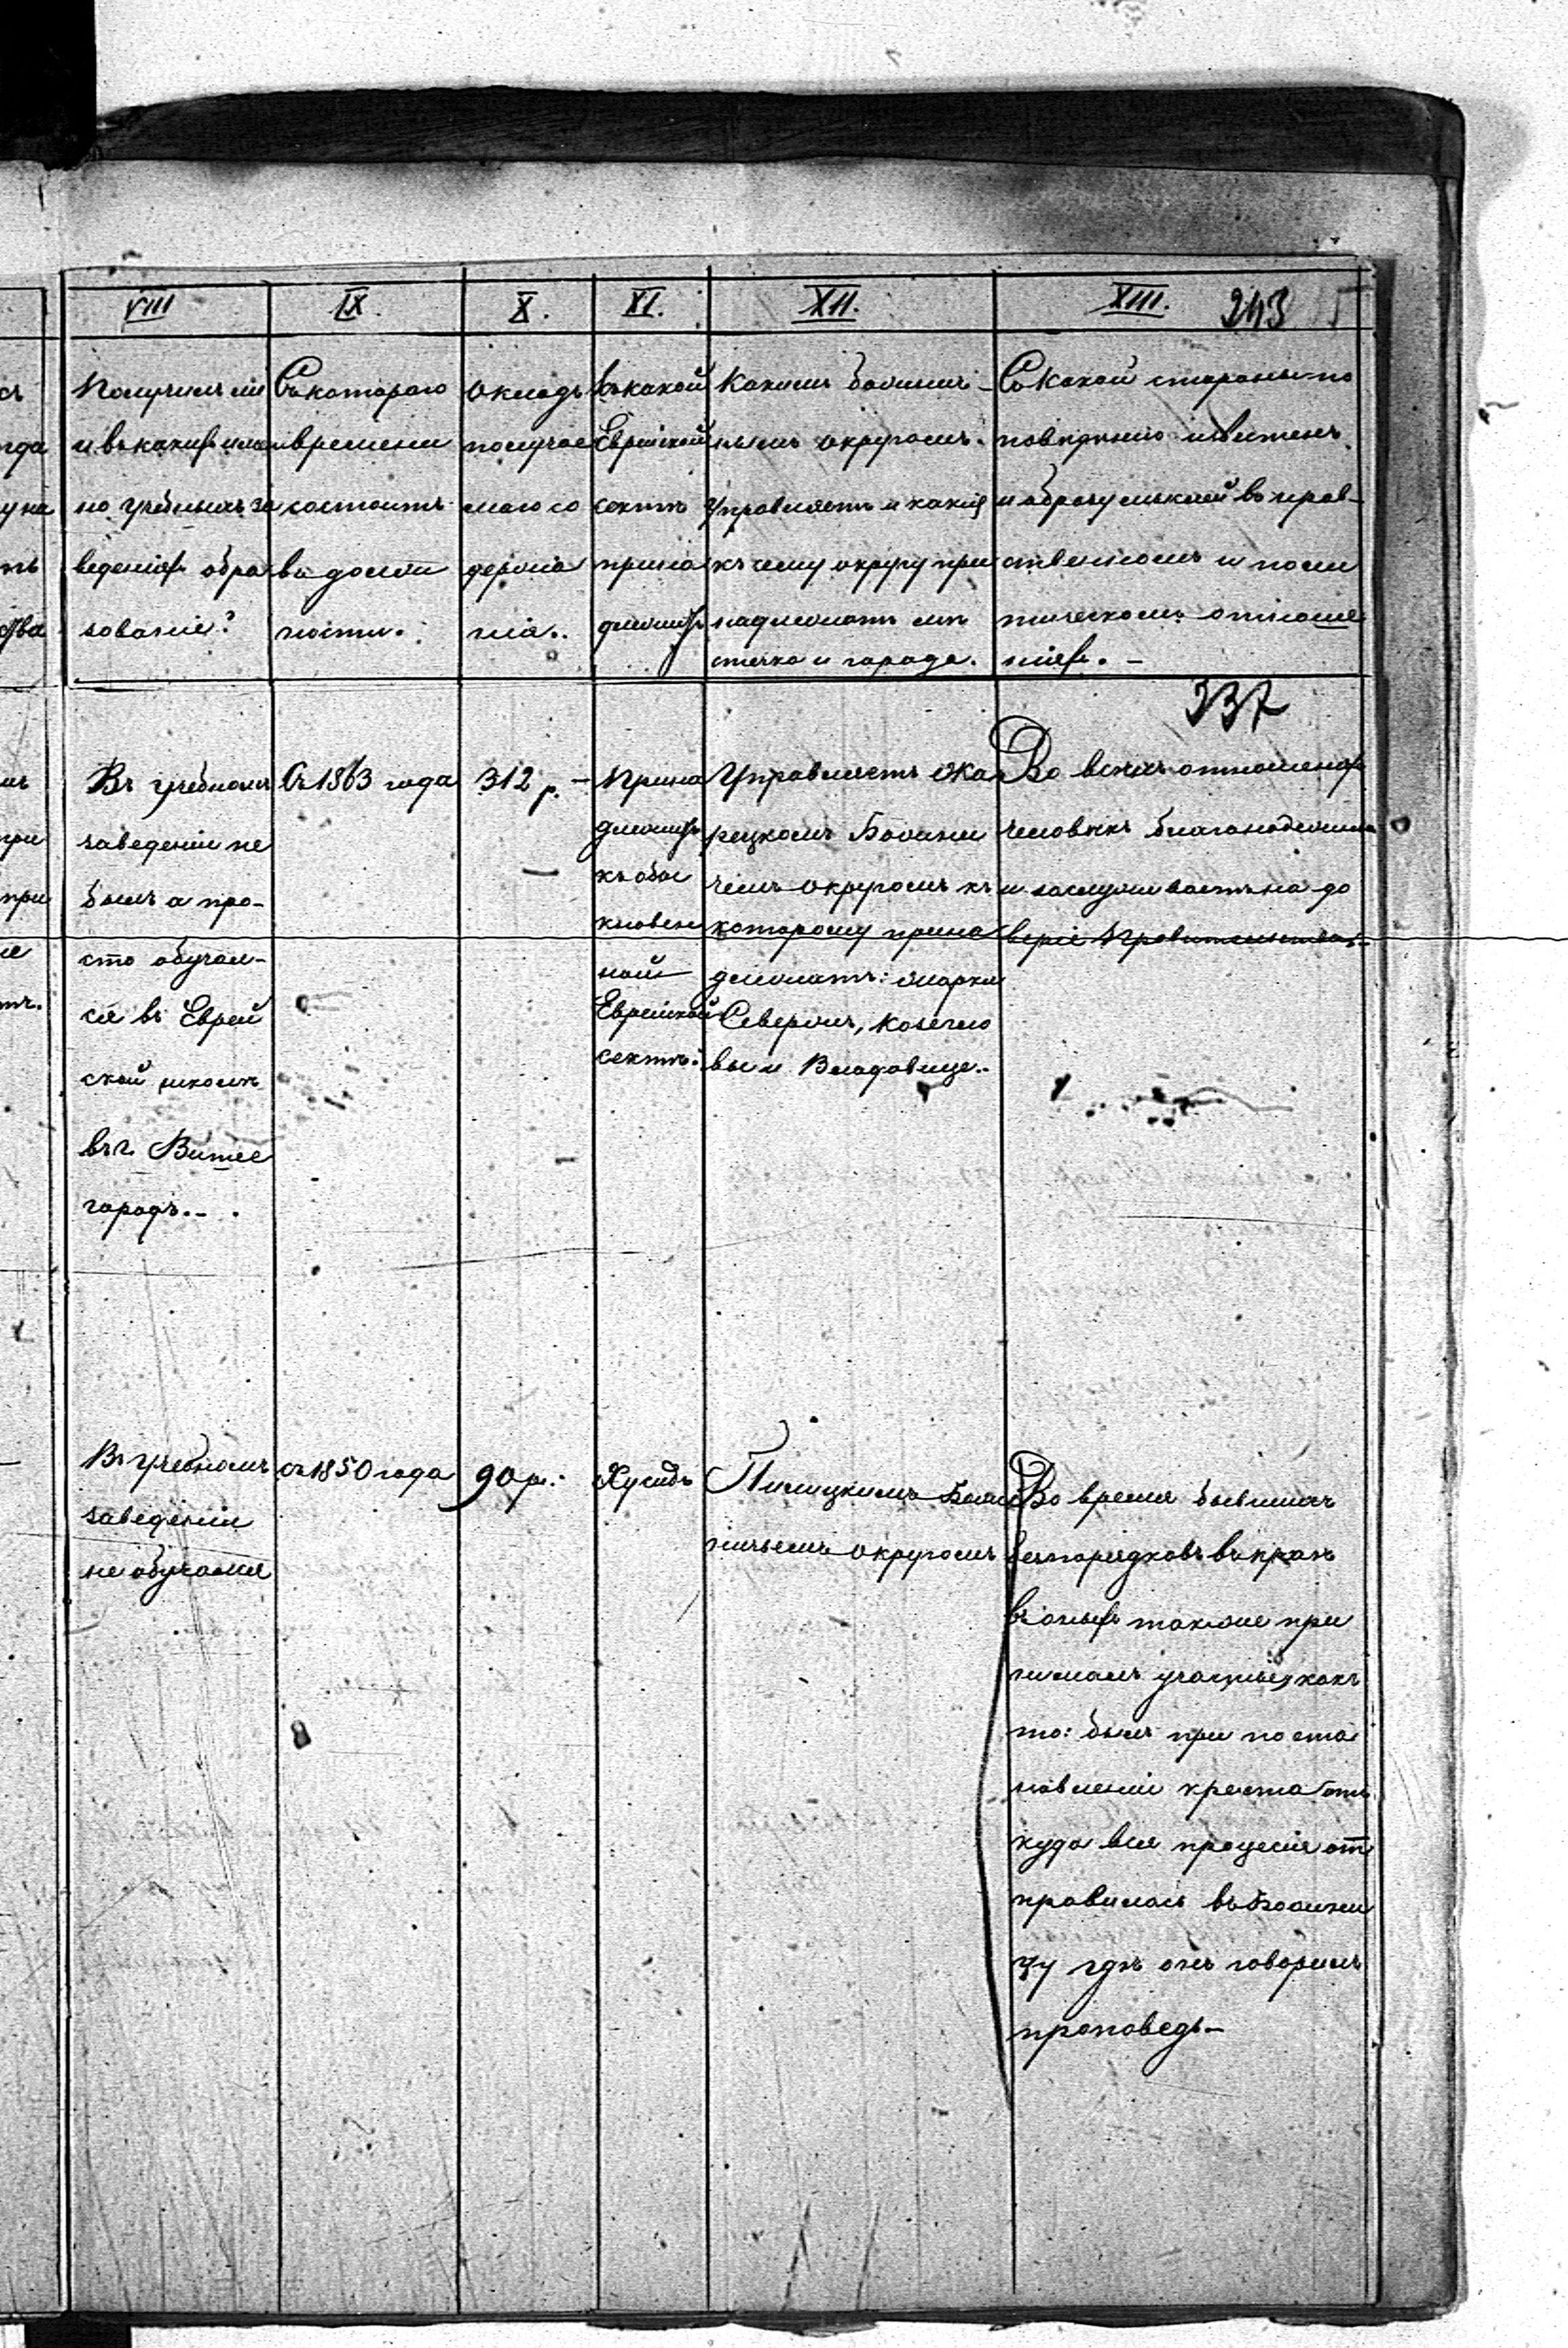 VIII
Получилъ ли
и въ какихъ имен
но учебныхъ за
веденіяхъ обра
зованіе?
IX.
Съ котораго
времени
состоитъ
въ долж
ности.
X.
Окладъ
получае
маго со
держа
нія.
XI.
Къ какой
Еврейской
сектѣ
прина
длежитъ
XII.
Какимъ божнич-
нымъ округомъ
управляетъ и какія
къ чему округу при
надлежатъ мѣ
стечка и города.
XIII.
243
Съ какой стороны по
поведенію извѣстенъ
и образу мыслей въ нрав-
ственномъ и поли
тическомъ отноше
ніяхъ. -
337
Въ учебномъ
заведеніи не
былъ а про-
сто обучал-
ся въ Еврей
ской школѣ
въ г.
городѣ.
Съ 1863 года
312 р. -
Прина
длежитъ
къ обы
кновен
ной
Еврейской
сектѣ.
Управляетъ
Божни
чемъ округомъ къ
которому прина
длежатъ:
Во всѣхъ отношеніяхъ
человѣкъ благонадежный
и заслуживаетъ на до
вѣріе Правительства.
Въ учебномъ
заведеніи
не обучался
съ 1850 года
90 р.
Хусидъ
Божни
чьемъ округомъ
Во время бывшихъ
безпорядковъ въ краѣ
въ оныхъ также при
нималъ участіе, какъ
то: былъ при поста
новленіи креста от
куда вся процесія от
правилась въ божни
цу гдѣ онъ говорилъ
проповедь.-